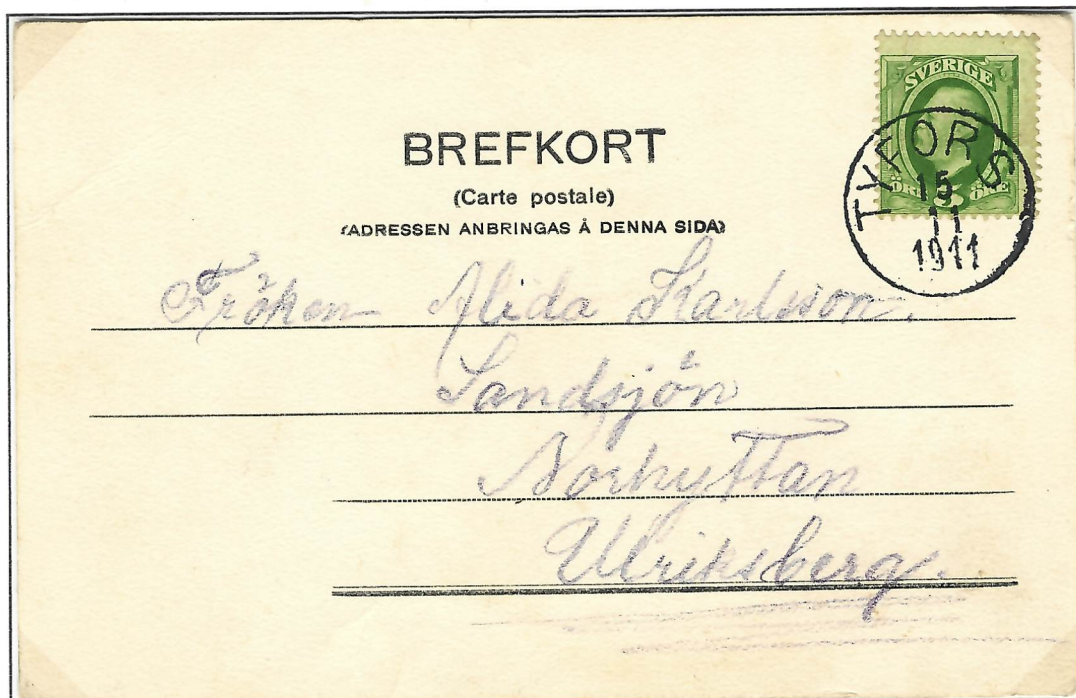 SVERIGE
ÖRE 5 ÖRE
TYFORS
15
11
1911
BREFKORT
(Carte postale)
(ADRESSEN ANBRINGAS Å DENNA SIDA)
Fröken Alida Karlsson.
Sandsjön
Norhyttan
Ulriksberg.